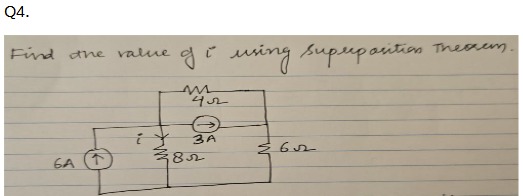 Q4.
Find the value of i using superposition Theorem.
4Ω
i
3A
6A
8Ω
6Ω